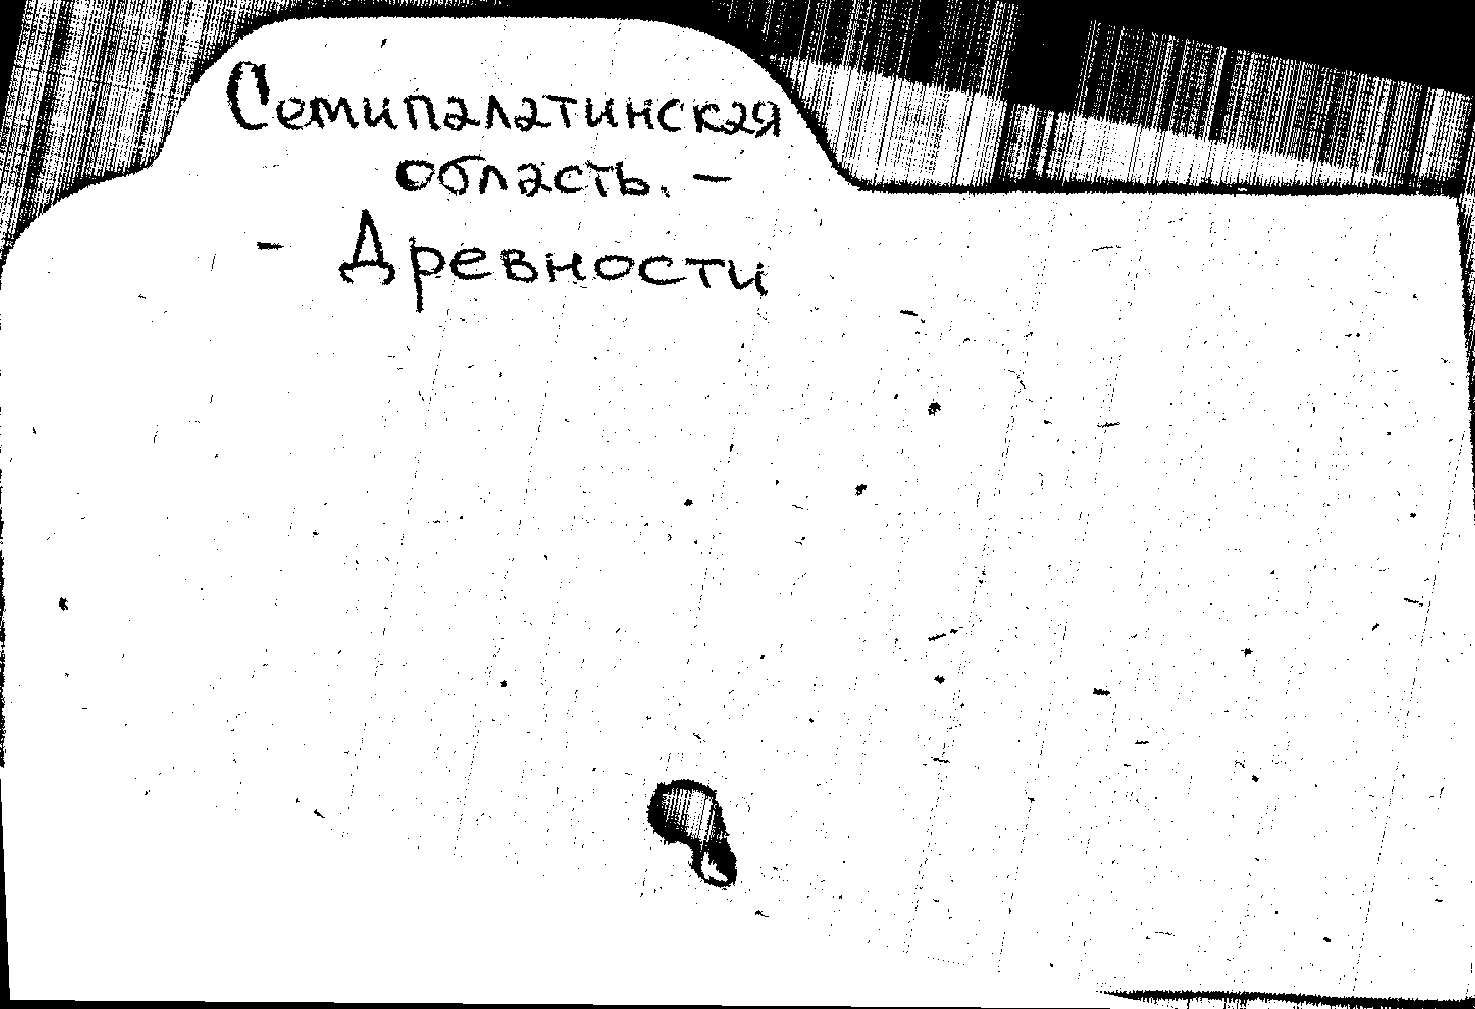 Семипалатинская
область. -
- Древности